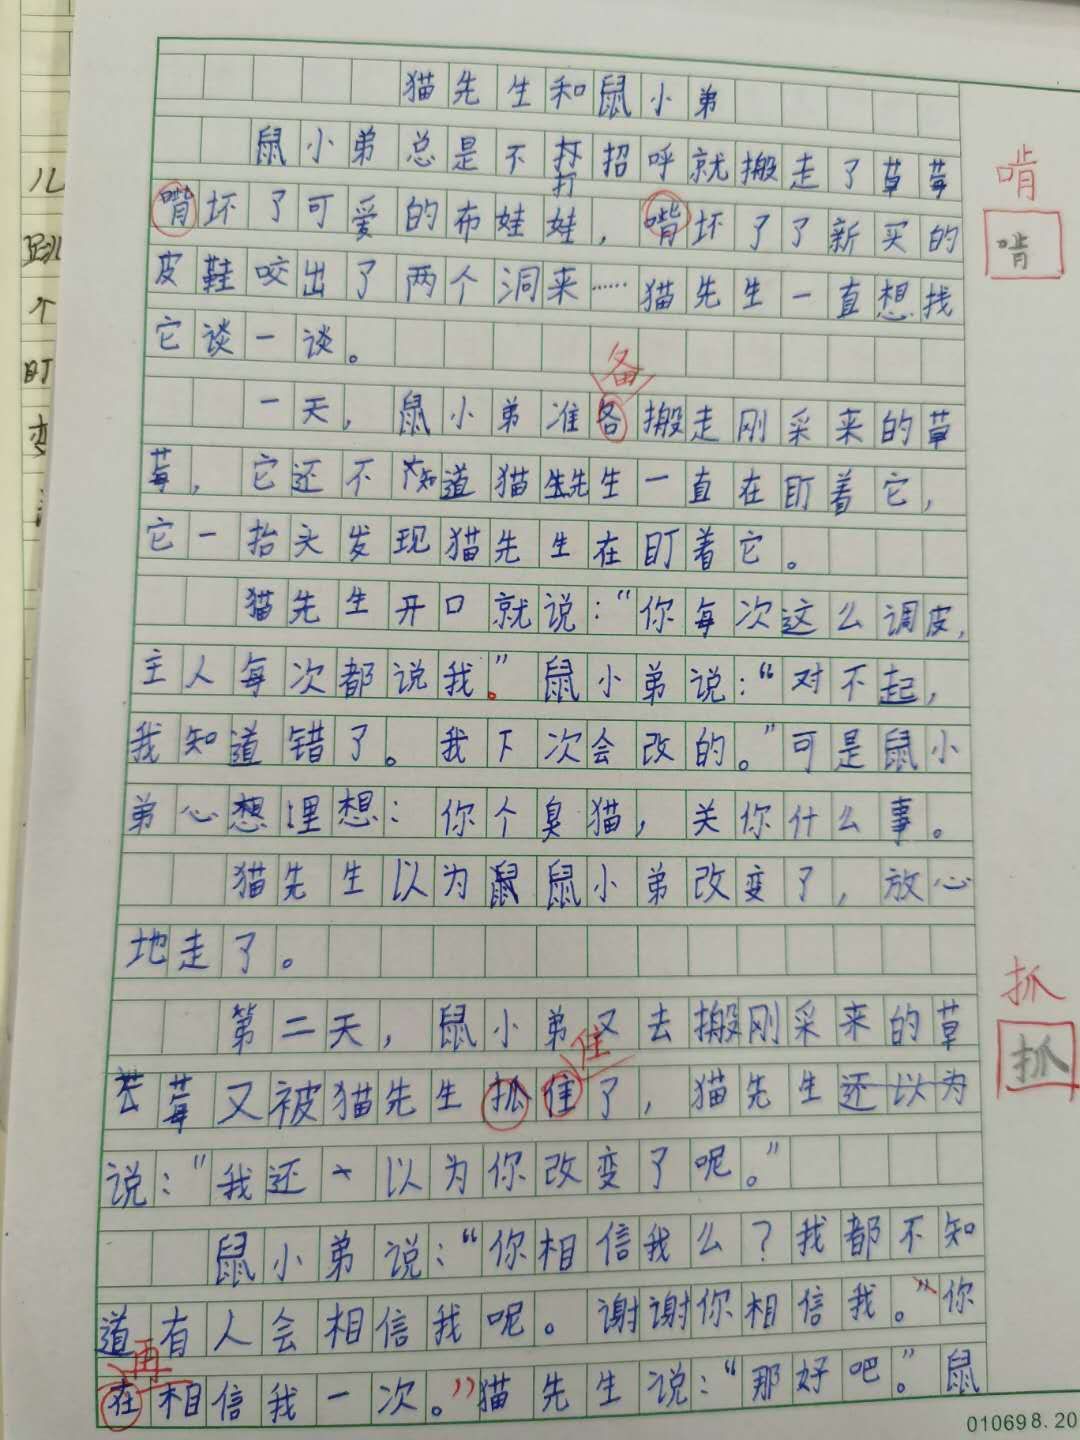 猫先生和鼠小弟
鼠小弟总是不打招呼就搬走了草莓
啃坏了可爱的布娃娃，啃坏了了新买的
皮鞋咬出了两个洞来……猫先生一直想找
它谈一谈。
备
一天，鼠小弟准各搬走刚采来的草
莓，它还不知道猫先生一直在盯着它，
它一抬头发现猫先生在盯着它。
猫先生开口就说：“你每次这么调皮，
主人每次都说我。”鼠小弟说：“对不起，
我知道错了。我下次会改的。”可是鼠小
弟心想理想：你个臭猫，关你什么事。
猫先生以为鼠小弟改变了，放心
地走了。
第二天，鼠小弟又去搬刚采来的草
住
莓又被猫先生抓住了，猫先生还以为
说：“我还以为你改变了呢。”
鼠小弟说：“你相信我么？我都不知
道有人会相信我呢。谢谢你相信我。”你
再
在相信我一次。”猫先生说：“那好吧。”鼠
啃
啃
抓
抓
儿
跳
个
盯
变
010698.20